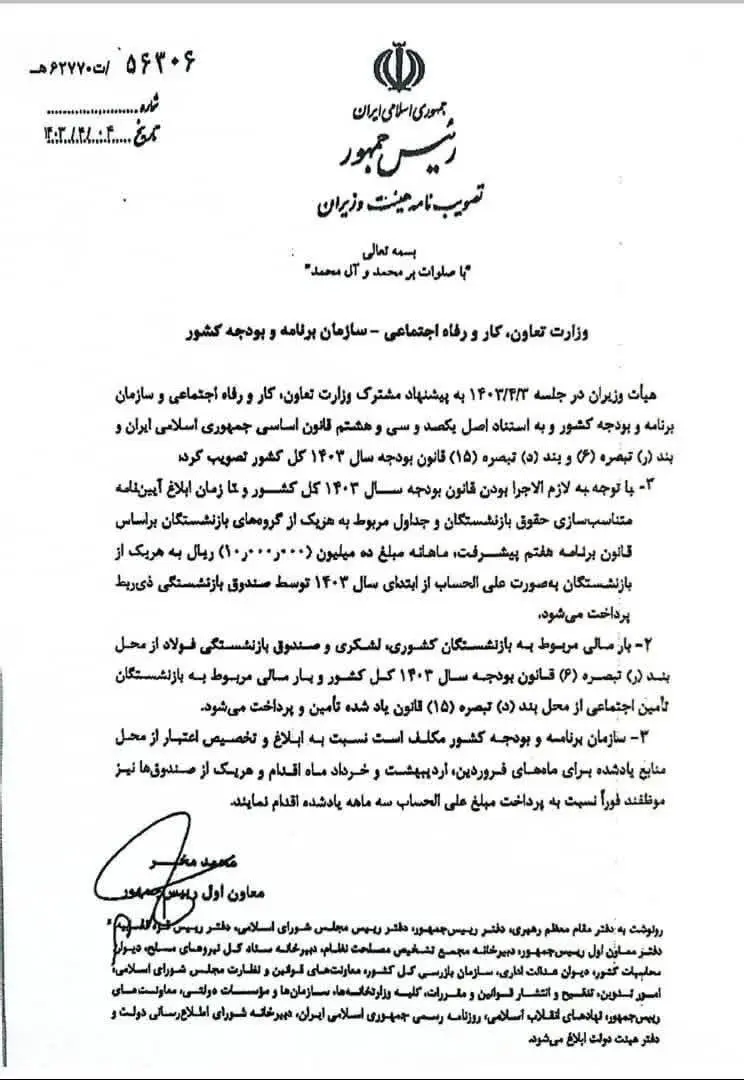 ۵۶۳۰۶ /ت۶۲۷۷۰هـ
شماره......................
تاریخ.....۱۴۰۳/۴/۰۴
جمهوری اسلامی ایران
رئیس جمهور
تصویب نامه هیئت وزیران
بسمه تعالی
"با صلوات بر محمد و آل محمد"
وزارت تعاون، کار و رفاه اجتماعی – سازمان برنامه و بودجه کشور
هیأت وزیران در جلسه ۱۴۰۳/۴/۳ به پیشنهاد مشترک وزارت تعاون، کار و رفاه اجتماعی و سازمان
برنامه و بودجه کشور و به استناد اصل یکصد و سی و هشتم قانون اساسی جمهوری اسلامی ایران و
بند (ر) تبصره (۶) و بند (د) تبصره (۱۵) قانون بودجه سال ۱۴۰۳ کل کشور تصویب کرد:
۳- با توجه به لازم الاجرا بودن قانون بودجه سال ۱۴۰۳ کل کشور و تا زمان ابلاغ آیین‌نامه
متناسب‌سازی حقوق بازنشستگان و جداول مربوط به هریک از گروه‌های بازنشستگان براساس
قانون برنامه هفتم پیشرفت، ماهانه مبلغ ده میلیون (۱۰٫۰۰۰٫۰۰۰) ریال به هریک از
بازنشستگان به‌صورت علی الحساب از ابتدای سال ۱۴۰۳ توسط صندوق بازنشستگی ذی‌ربط
پرداخت می‌شود.
۲- بار مالی مربوط به بازنشستگان کشوری، لشکری و صندوق بازنشستگی فولاد از محل
بند (ر) تبصره (۶) قانون بودجه سال ۱۴۰۳ کل کشور و بار مالی مربوط به بازنشستگان
تأمین اجتماعی از محل بند (د) تبصره (۱۵) قانون یاد شده تأمین و پرداخت می‌شود.
۳- سازمان برنامه و بودجه کشور مکلف است نسبت به ابلاغ و تخصیص اعتبار از محل
منابع یادشده برای ماه‌های فروردین، اردیبهشت و خرداد ماه اقدام و هریک از صندوق‌ها نیز
موظفند فوراً نسبت به پرداخت مبلغ علی الحساب سه ماهه یادشده اقدام نمایند.
محمد مخبر
معاون اول رییس‌جمهور
رونوشت به دفتر مقام معظم رهبری، دفتر رییس‌جمهور، دفتر رییس مجلس شورای اسلامی، دفتر رییس قوه قضاییه،
دفتر معاون اول رییس‌جمهور، دبیرخانه مجمع تشخیص مصلحت نظام، دبیرخانه ستاد کل نیروهای مسلح، دیوان
محاسبات کشور، دیوان عدالت اداری، سازمان بازرسی کل کشور، معاونت‌های قوانین و نظارت مجلس شورای اسلامی،
امور تدوین، تنقیح و انتشار قوانین و مقررات، کلیه وزارتخانه‌ها، سازمان‌ها و مؤسسات دولتی، معاونت‌های
رییس‌جمهور، نهادهای انقلاب اسلامی، روزنامه رسمی جمهوری اسلامی ایران، دبیرخانه شورای اطلاع‌رسانی دولت و
دفتر هیئت دولت ابلاغ می‌شود.